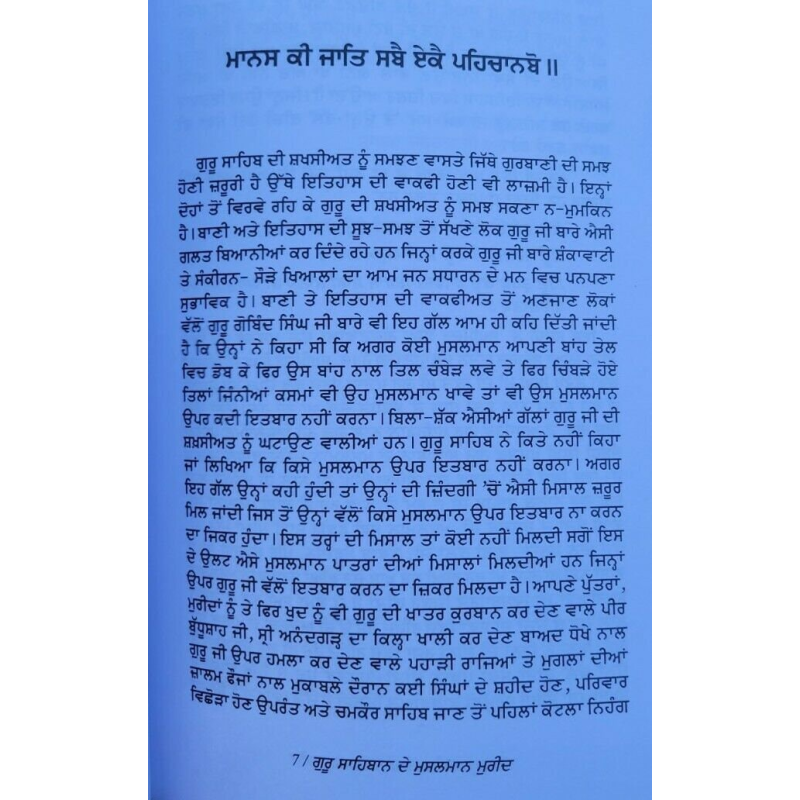 ਮਾਨਸ ਕੀ ਜਾਤਿ ਸਬੈ ਏਕੈ ਪਹਿਚਾਨਬੋ॥
ਗੁਰੂ ਸਾਹਿਬ ਦੀ ਸ਼ਖਸੀਅਤ ਨੂੰ ਸਮਝਣ ਵਾਸਤੇ ਜਿੱਥੇ ਗੁਰਬਾਣੀ ਦੀ ਸਮਝ
ਹੋਣੀ ਜ਼ਰੂਰੀ ਹੈ ਉੱਥੇ ਇਤਿਹਾਸ ਦੀ ਵਾਕਫੀ ਹੋਣੀ ਵੀ ਲਾਜ਼ਮੀ ਹੈ। ਇਨ੍ਹਾਂ
ਦੋਹਾਂ ਤੋਂ ਵਿਰਵੇ ਰਹਿ ਕੇ ਗੁਰੂ ਦੀ ਸ਼ਖਸੀਅਤ ਨੂੰ ਸਮਝ ਸਕਣਾ ਨ-ਮੁਮਕਿਨ
ਹੈ। ਬਾਣੀ ਅਤੇ ਇਤਿਹਾਸ ਦੀ ਸੂਝ-ਸਮਝ ਤੋਂ ਸੱਖਣੇ ਲੋਕ ਗੁਰੂ ਜੀ ਬਾਰੇ ਐਸੀ
ਗਲਤ ਬਿਆਨੀਆਂ ਕਰ ਦਿੰਦੇ ਰਹੇ ਹਨ ਜਿਨ੍ਹਾਂ ਕਰਕੇ ਗੁਰੂ ਜੀ ਬਾਰੇ ਸ਼ੰਕਾਵਾਦੀ
ਤੇ ਸੰਕੀਰਨ- ਸੌੜੇ ਖਿਆਲਾਂ ਦਾ ਆਮ ਜਨ ਸਧਾਰਨ ਦੇ ਮਨ ਵਿਚ ਪਨਪਣਾ
ਸੁਭਾਵਿਕ ਹੈ। ਬਾਣੀ ਤੇ ਇਤਿਹਾਸ ਦੀ ਵਾਕਫੀਅਤ ਤੋਂ ਅਣਜਾਣ ਲੋਕਾਂ
ਵੱਲੋਂ ਗੁਰੂ ਗੋਬਿੰਦ ਸਿੰਘ ਜੀ ਬਾਰੇ ਵੀ ਇਹ ਗੱਲ ਆਮ ਹੀ ਕਹਿ ਦਿੱਤੀ ਜਾਂਦੀ
ਹੈ ਕਿ ਉਨ੍ਹਾਂ ਨੇ ਕਿਹਾ ਸੀ ਕਿ ਅਗਰ ਕੋਈ ਮੁਸਲਮਾਨ ਆਪਣੀ ਬਾਂਹ ਤੇਲ
ਵਿਚ ਡੋਬ ਕੇ ਫਿਰ ਉਸ ਬਾਂਹ ਨਾਲ ਤਿਲ ਚੰਬੇੜ ਲਵੇ ਤੇ ਫਿਰ ਚਿੰਬੜੇ ਹੋਏ
ਤਿਲਾਂ ਜਿੰਨੀਆਂ ਕਸਮਾਂ ਵੀ ਉਹ ਮੁਸਲਮਾਨ ਖਾਵੇ ਤਾਂ ਵੀ ਉਸ ਮੁਸਲਮਾਨ
ਉਪਰ ਕਦੀ ਇਤਬਾਰ ਨਹੀਂ ਕਰਨਾ। ਬਿਲਾ-ਸ਼ੱਕ ਐਸੀਆਂ ਗੱਲਾਂ ਗੁਰੂ ਜੀ ਦੀ
ਸ਼ਖ਼ਸੀਅਤ ਨੂੰ ਘਟਾਉਣ ਵਾਲੀਆਂ ਹਨ। ਗੁਰੂ ਸਾਹਿਬ ਨੇ ਕਿਤੇ ਨਹੀਂ ਕਿਹਾ
ਜਾਂ ਲਿਖਿਆ ਕਿ ਕਿਸੇ ਮੁਸਲਮਾਨ ਉਪਰ ਇਤਬਾਰ ਨਹੀਂ ਕਰਨਾ। ਅਗਰ
ਇਹ ਗੱਲ ਉਨ੍ਹਾਂ ਕਹੀ ਹੁੰਦੀ ਤਾਂ ਉਨ੍ਹਾਂ ਦੀ ਜ਼ਿੰਦਗੀ 'ਚੋਂ ਐਸੀ ਮਿਸਾਲ ਜ਼ਰੂਰ
ਮਿਲ ਜਾਂਦੀ ਜਿਸ ਤੋਂ ਉਨ੍ਹਾਂ ਵੱਲੋਂ ਕਿਸੇ ਮੁਸਲਮਾਨ ਉਪਰ ਇਤਬਾਰ ਨਾ ਕਰਨ
ਦਾ ਜਿਕਰ ਹੁੰਦਾ। ਇਸ ਤਰ੍ਹਾਂ ਦੀ ਮਿਸਾਲ ਤਾਂ ਕੋਈ ਨਹੀਂ ਮਿਲਦੀ ਸਗੋਂ ਇਸ
ਦੇ ਉਲਟ ਐਸੇ ਮੁਸਲਮਾਨ ਪਾਤਰਾਂ ਦੀਆਂ ਮਿਸਾਲਾਂ ਮਿਲਦੀਆਂ ਹਨ ਜਿਨ੍ਹਾਂ
ਉਪਰ ਗੁਰੂ ਜੀ ਵੱਲੋਂ ਇਤਬਾਰ ਕਰਨ ਦਾ ਜ਼ਿਕਰ ਮਿਲਦਾ ਹੈ। ਆਪਣੇ ਪੁੱਤਰਾਂ,
ਮੁਰੀਦਾਂ ਨੂੰ ਤੇ ਫਿਰ ਖੁਦ ਨੂੰ ਵੀ ਗੁਰੂ ਦੀ ਖਾਤਰ ਕੁਰਬਾਨ ਕਰ ਦੇਣ ਵਾਲੇ ਪੀਰ
ਬੁੱਧੂਸ਼ਾਹ ਜੀ, ਸ੍ਰੀ ਅਨੰਦਗੜ੍ਹ ਦਾ ਕਿਲ੍ਹਾ ਖਾਲੀ ਕਰ ਦੇਣ ਬਾਅਦ ਧੋਖੇ ਨਾਲ
ਗੁਰੂ ਜੀ ਉਪਰ ਹਮਲਾ ਕਰ ਦੇਣ ਵਾਲੇ ਪਹਾੜੀ ਰਾਜਿਆਂ ਤੇ ਮੁਗਲਾਂ ਦੀਆਂ
ਜ਼ਾਲਮ ਫੌਜਾਂ ਨਾਲ ਮੁਕਾਬਲੇ ਦੌਰਾਨ ਕਈ ਸਿੰਘਾਂ ਦੇ ਸ਼ਹੀਦ ਹੋਣ, ਪਰਿਵਾਰ
ਵਿਛੋੜਾ ਹੋਣ ਉਪਰੰਤ ਅਤੇ ਚਮਕੌਰ ਸਾਹਿਬ ਜਾਣ ਤੋਂ ਪਹਿਲਾਂ ਕੋਟਲਾ ਨਿਹੰਗ
7/ ਗੁਰੂ ਸਾਹਿਬਾਨ ਦੇ ਮੁਸਲਮਾਨ ਮੁਰੀਦ